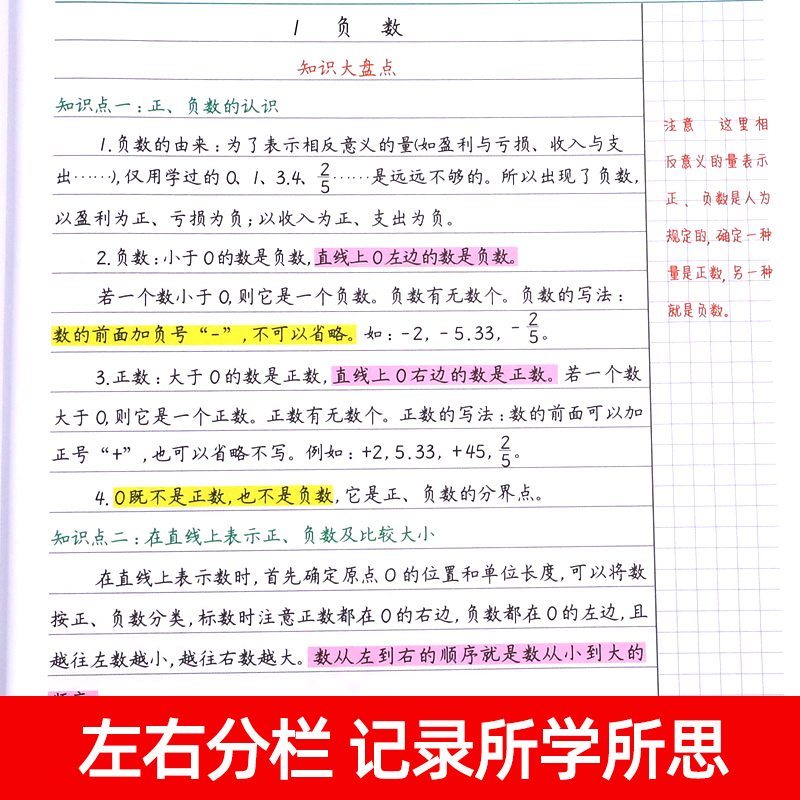 1 负 数
知识大盘点
知识点一：正、负数的认识
1.负数的由来：为了表示相反意义的量(如盈利与亏损、收入与支
出……),仅用学过的0、1、3.4、2/5……是远远不够的。所以出现了负数,
以盈利为正、亏损为负；以收入为正、支出为负。
2.负数：小于0的数是负数,直线上0左边的数是负数。
若一个数小于0,则它是一个负数。负数有无数个。负数的写法：
数的前面加负号“-”,不可以省略。如：-2,-5.33,-2/5。
3.正数：大于0的数是正数,直线上0右边的数是正数。若一个数
大于0,则它是一个正数。正数有无数个。正数的写法：数的前面可以加
正号“+”,也可以省略不写。例如：+2,5.33,+45,2/5。
4.0既不是正数,也不是负数,它是正、负数的分界点。
知识点二：在直线上表示正、负数及比较大小
在直线上表示数时,首先确定原点0的位置和单位长度,可以将数
按正、负数分类,标数时注意正数都在0的右边,负数都在0的左边,且
越往左数越小,越往右数越大。数从左到右的顺序就是数从小到大的
注意 这里相
反意义的量表示
正、负数是人为
规定的,确定一种
量是正数,另一种
就是负数。
左右分栏 记录所学所思